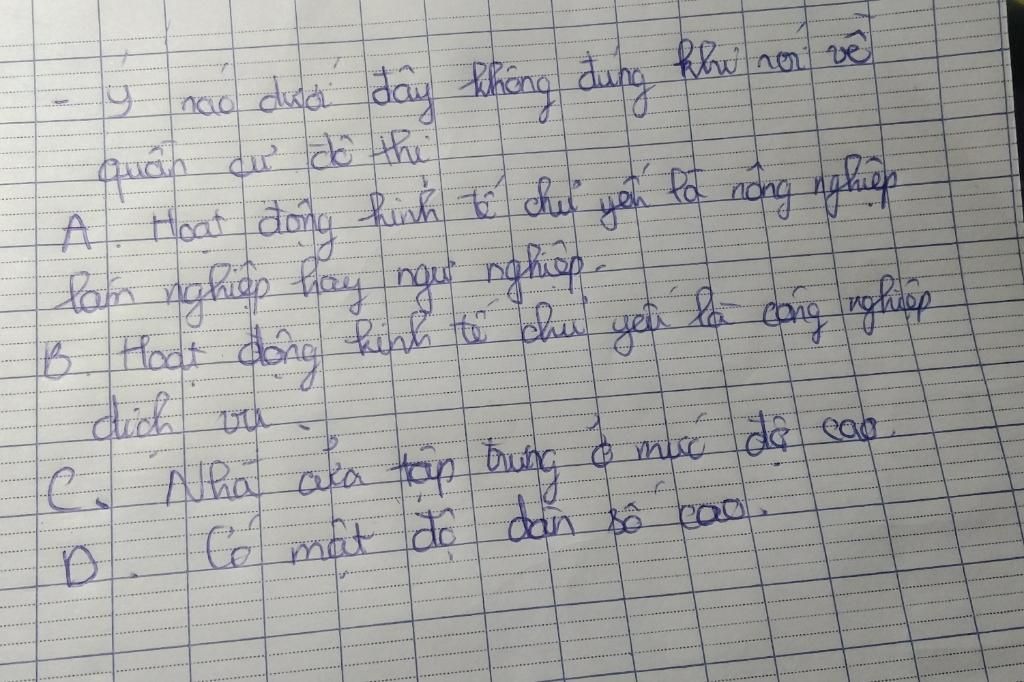 - Ý nào dưới đây không đúng khi nói về
quần cư đô thị
A. Hoạt động kinh tế chủ yếu là nông nghiệp
lâm nghiệp hay ngư nghiệp.
B. Hoạt động kinh tế chủ yếu là công nghiệp
dịch vụ.
C. Nhà cửa tập trung ở mức độ cao.
D. Có mật độ dân số cao.